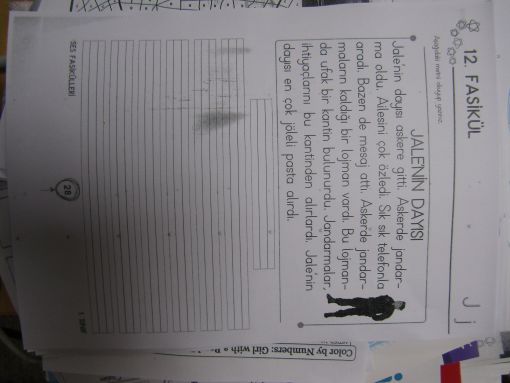 12. FASİKÜL
J j
Aşağıdaki metni okuyup yazınız.
JALE'NİN DAYISI
Jale'nin dayısı askere gitti. Askerde jandar-
ma oldu. Ailesini çok özledi. Sık sık telefonla
aradı. Bazen de mesaj attı. Askerde jandar-
maların kaldığı bir lojman vardı. Bu lojman-
da ufak bir kantin bulunurdu. Jandarmalar,
ihtiyaçlarını bu kantinden alırlardı. Jale'nin
dayısı en çok jöleli pasta alırdı.
SES FASİKÜLLERİ
28
1. SINIF
Color by Numbers: Girl with a